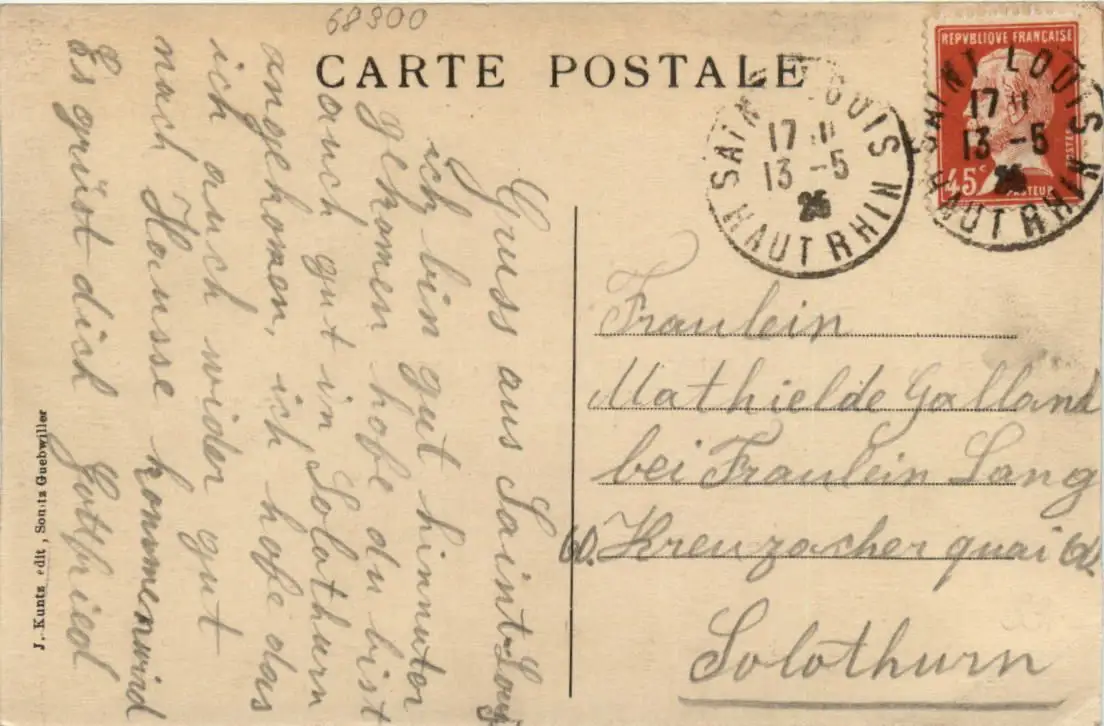 68300
CARTE POSTALE
REPVBLIQUE FRANÇAISE
POSTES
45c
PASTEUR
SAINT LOUIS
17 11
13 -5
HAUT RHIN
SAINT LOUIS
17 11
13 -5
26
HAUT RHIN
Gruss aus Saint-Louis
ich bin gut hinnuter
gekomen hofe du bist
auch gut in Solothurn
angekomen, ich hofe das
ich auch wider gut
nach Hausse kommenwird
Es grüst dich Gottfried
Fraulein
Mathielde Galland
bei Fraulein Lang
60. Kreuzacher quai 60.
Solothurn
J. Kuntz edit, Soultz Guebwiller